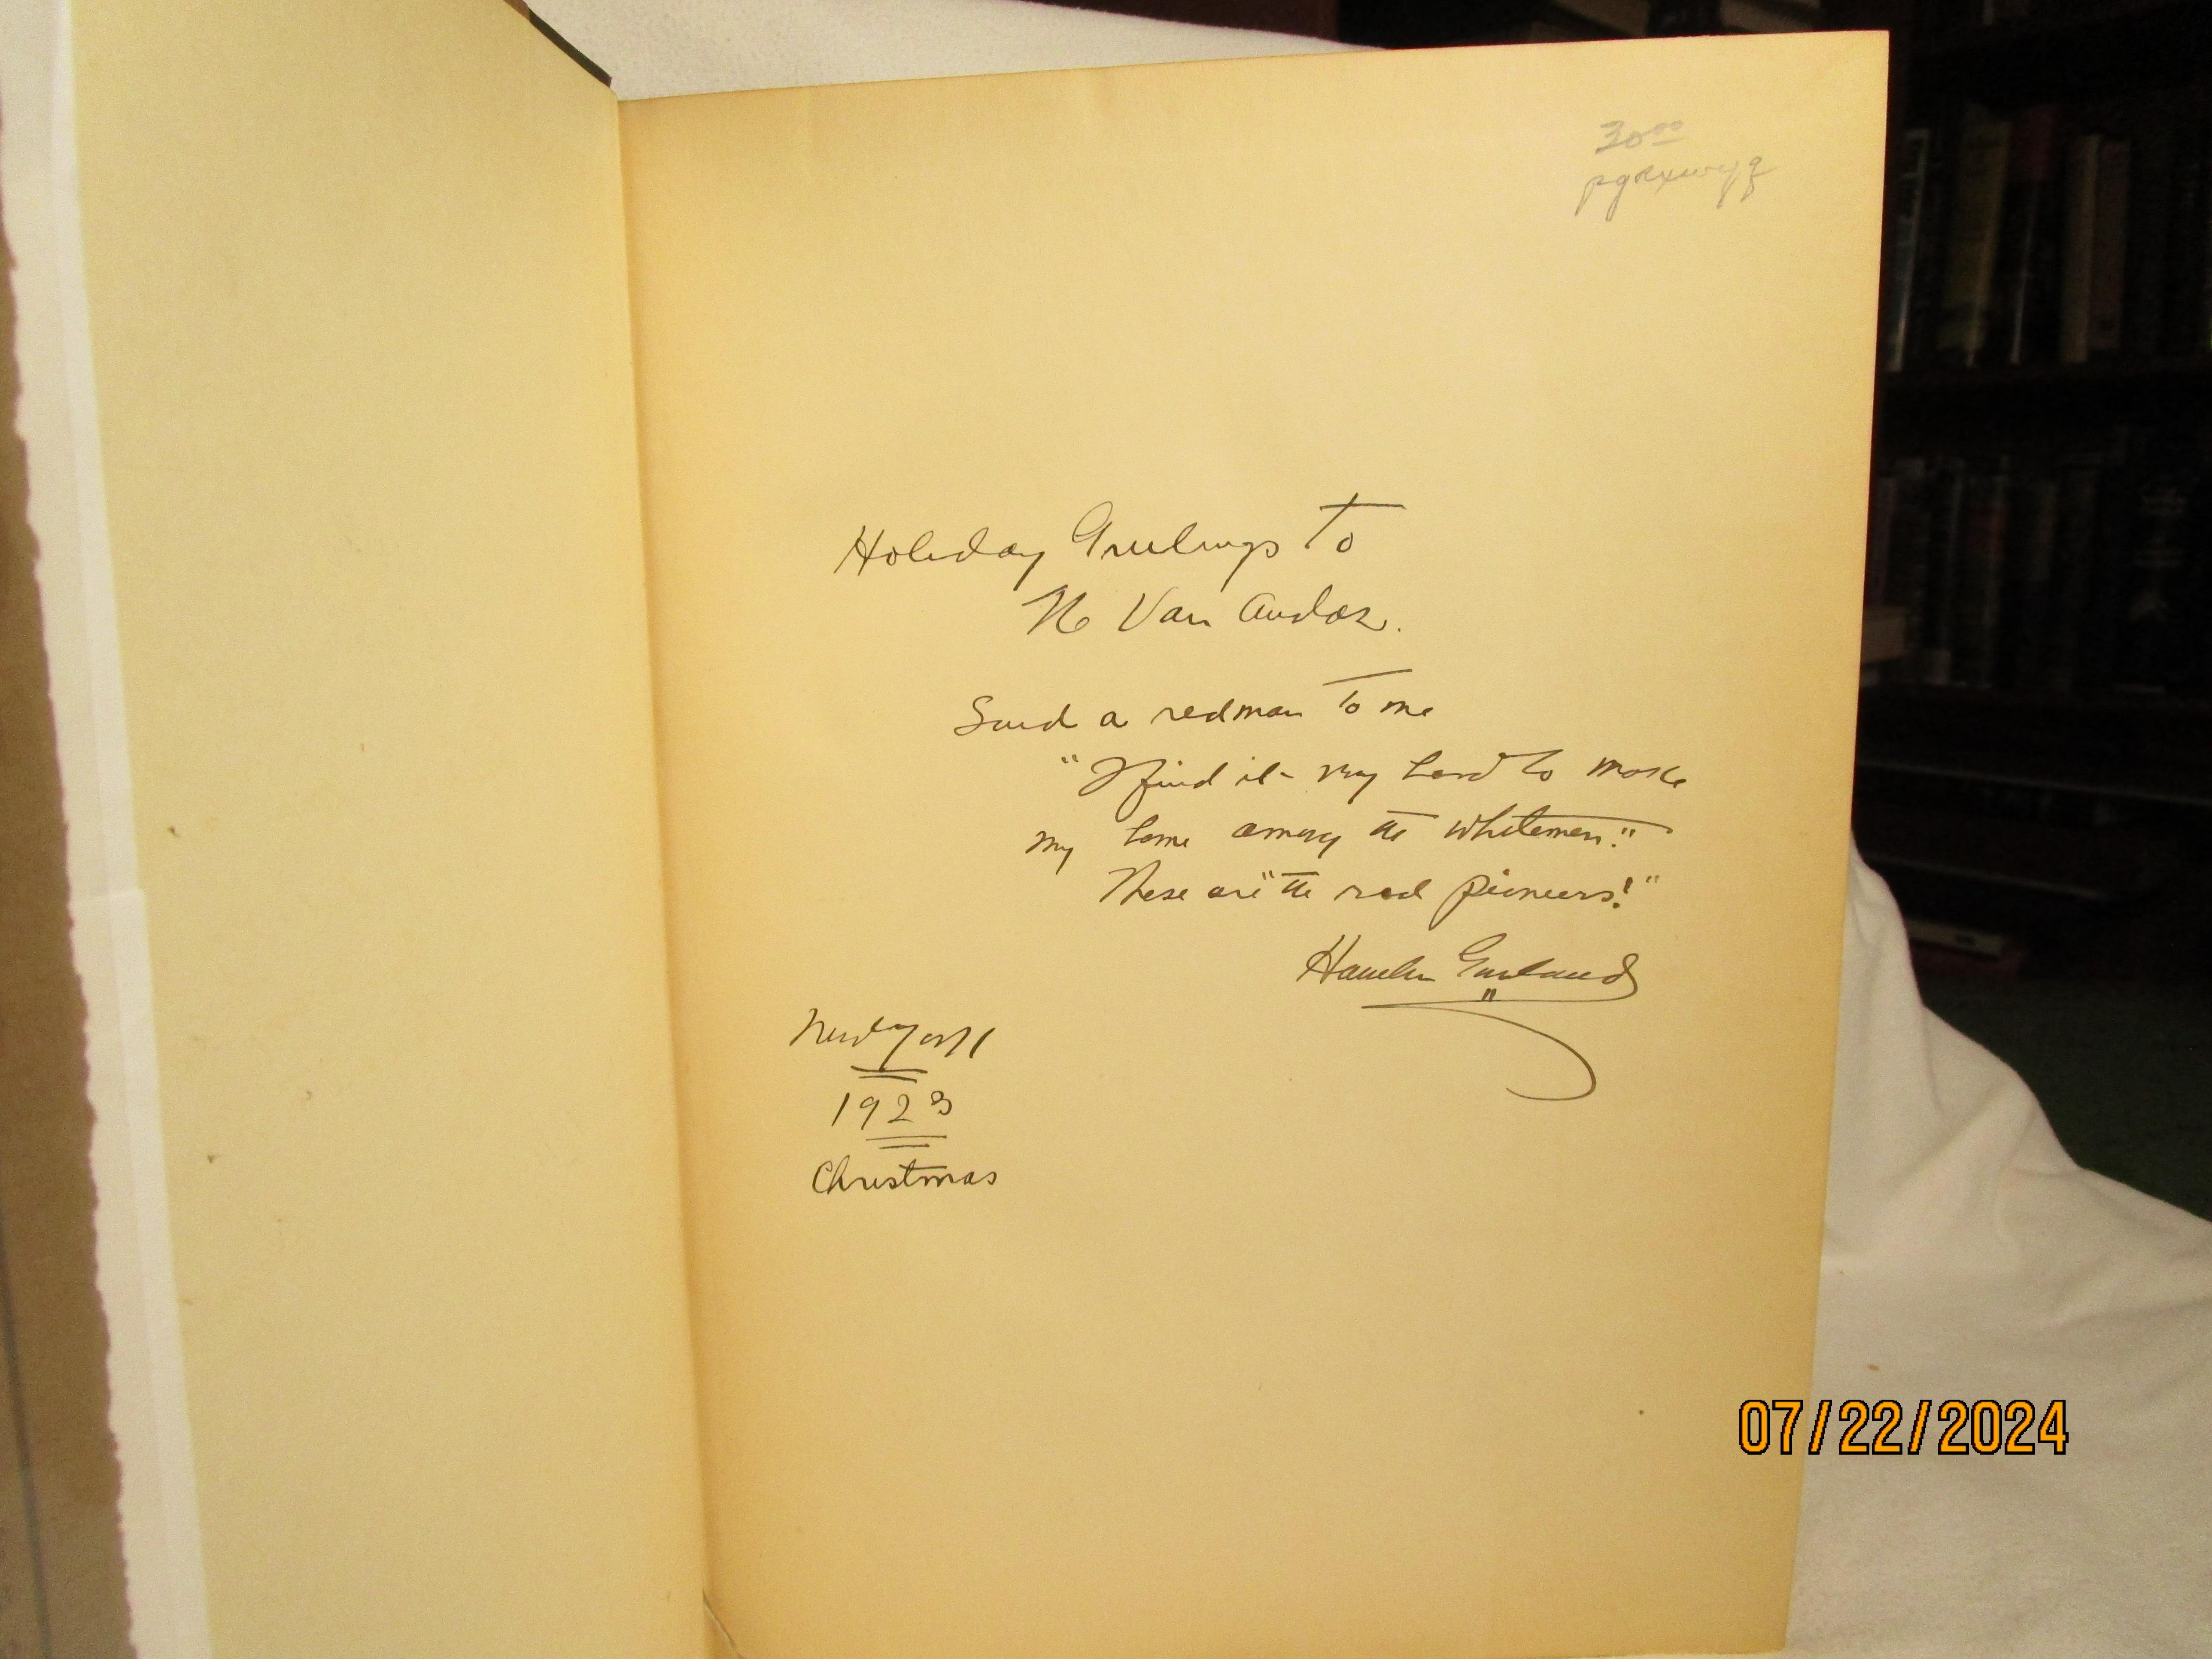 30⁰⁰
Holiday Greetings to
Van
Said a redman to me
"I find it very hard to make
my home among the whitemen."
These are "the red pioneers!"
Hamlin Garland
New York
1923
Christmas
07/22/2024